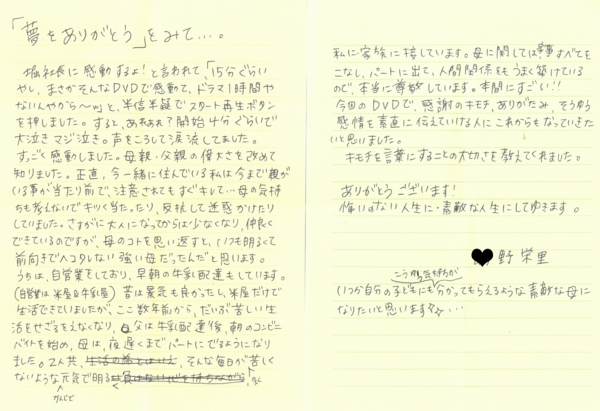 「夢をありがとう」をみて…。
堀社長に感動するよ！と言われて、「15分ぐらい
やし、まさかそんなDVDで感動て、ドラマ1時間や
ないんやから〜w」と、半信半疑でスタート再生ボタン
を押しました。すると、あれあれ？開始4分ぐらいで
大泣きマジ泣き。声をころして涙流してました。
すっごく感動しました。母親・父親の偉大さを改めて
知りました。正直、今一緒に住んでいる私は今まで親が
いる事が当たり前で、注意されてもすぐキレて…母の気持
ちも考えないでキツく当たったり、反抗して迷惑かけたり
していました。さすがに大人になってからは少なくなり、仲良く
できているのですが、母のコトを思い返すと、いつも明るくて
前向きでヘコタレない強い母だったんだと思います。
うちは、自営業をしており、早朝の牛乳配達もしています。
(自営業は米屋&牛乳屋) 昔は景気も良かったし、米屋だけで
生活できていましたが、ここ数年前から、だいぶ苦しい生
活をせざるをえなくなり、父は牛乳配達後、朝のコンビニ
バイトを始め、母は、夜遅くまでパートにでるようになり
ました。2人共、そんな毎日が苦し
くないような元気で明る
く
かんじで
私に・家族に接しています。母に関しては家事すべても
こなし、パートに出て、人間関係をもうまく築けている
ので、本当に尊敬しています。本間にすごい!!
今回のDVDで、感謝のキモチ、ありがたみ、そうゆう
感情を素直に伝えていける人にこれからもなっていきた
いと思いました。
キモチを言葉にすることの大切さを教えてくれました。
ありがとうございます！
悔いのない人生に・素敵な人生にしてゆきます。
♥野 栄里
こう
気持ちが
いつか自分の子どもにも分かってもらえるような素敵な母に
なりたいと思います☆☆…